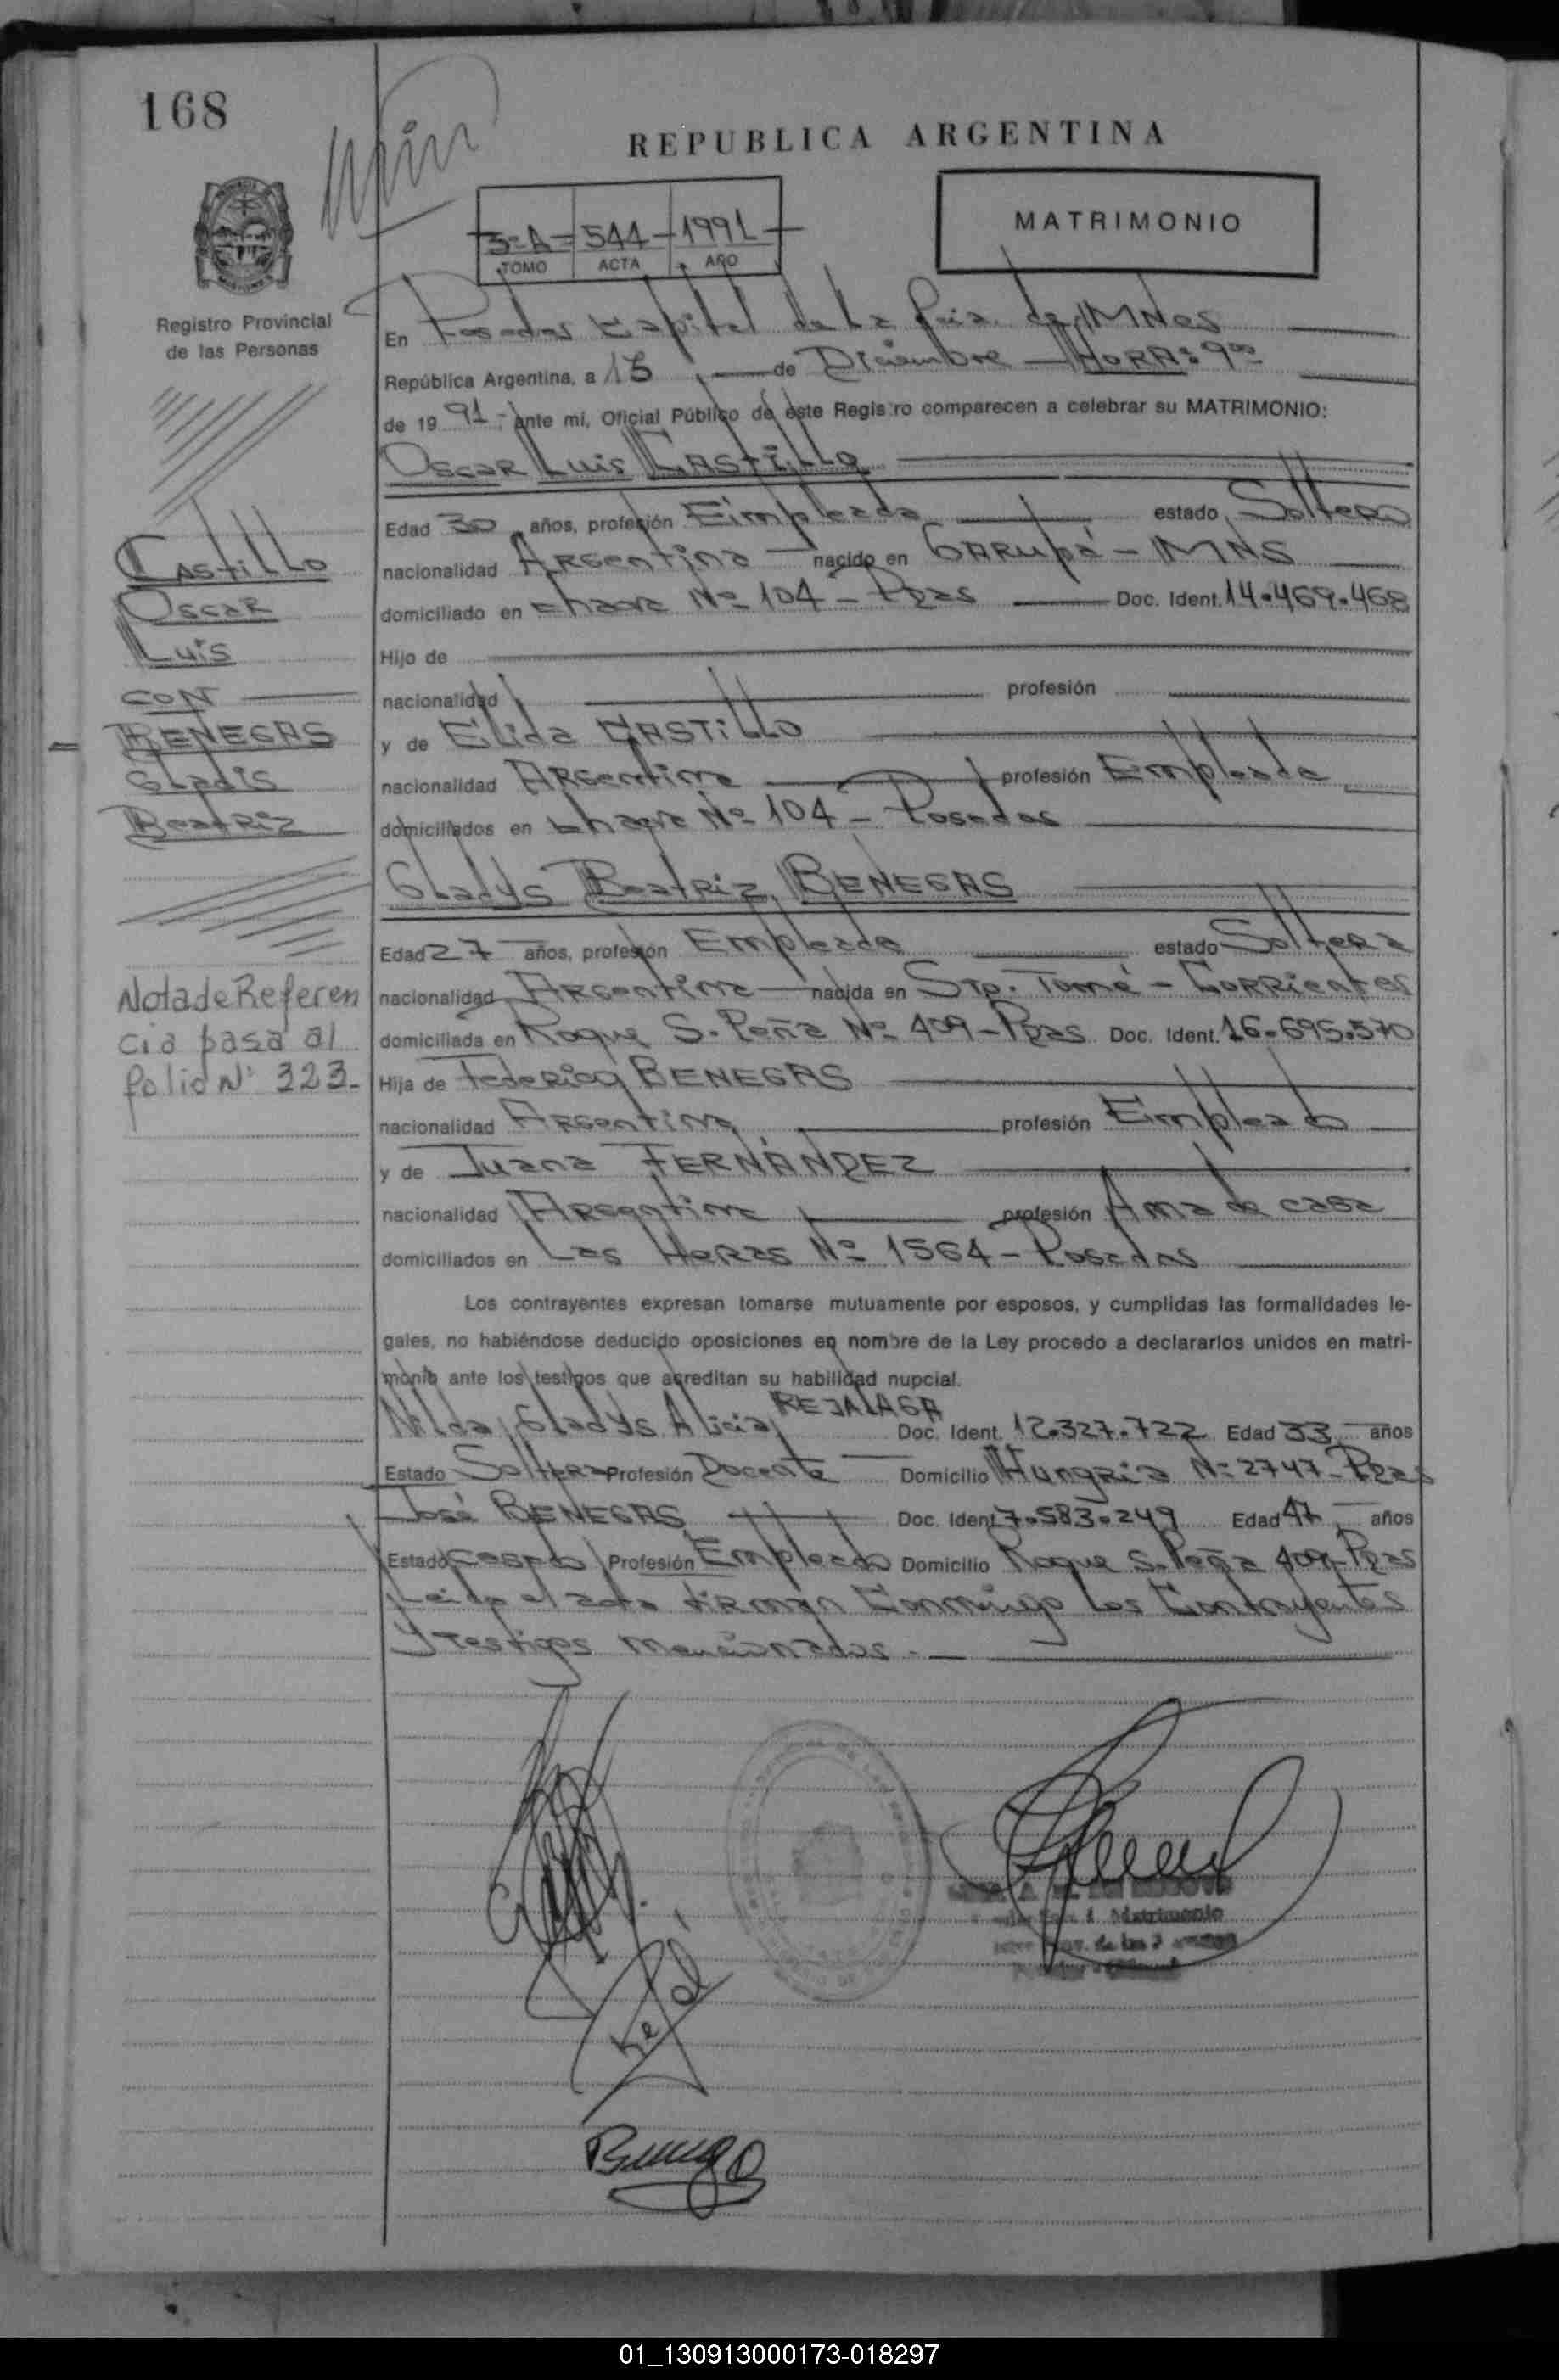 168
REPUBLICA ARGENTINA
3º A - 544 - 1991
TOMO ACTA AÑO
MATRIMONIO
Registro Provincial
de las Personas
En Posadas Capital de la Pcia. de MNes
República Argentina, a 13 de Diciembre HORA: 9⁰⁰
de 1991, ante mi, Oficial Público de este Registro comparecen a celebrar su MATRIMONIO:
Oscar Luis CASTILLO
Edad 30 años, profesión Empleado estado Soltero
nacionalidad Argentina nacido en GARUPÁ - MNS
domiciliado en chacra Nº 104 - Pdas Doc. Ident. 14.469.468
Hijo de
nacionalidad profesión
y de Elida CASTILLO
nacionalidad Argentina profesión Empleada
domiciliados en chacra Nº 104 - Posadas
Gladys Beatriz BENEGAS
Edad 27 años, profesión Empleada estado Soltera
nacionalidad Argentina nacida en Sto. Tomé - Corrientes
domiciliada en Roque S. Peña Nº 409 - Pdas Doc. Ident. 16.695.570
Hija de Federico BENEGAS
nacionalidad Argentina profesión Empleado
y de Juana FERNÁNDEZ
nacionalidad Argentina profesión Ama de casa
domiciliados en Las Heras Nº 1564 - Posadas
Los contrayentes expresan tomarse mutuamente por esposos, y cumplidas las formalidades le-
gales, no habiéndose deducido oposiciones en nombre de la Ley procedo a declararlos unidos en matri-
monio ante los testigos que acreditan su habilidad nupcial.
Nilda Gladys Alicia REJALAGA Doc. Ident. 12.327.722 Edad 33 años
Estado Soltera Profesión Docente Domicilio Hungria Nº 2747 - Pdas
José BENEGAS Doc. Ident. 7.583.249 Edad 47 años
Estado casado Profesión Empleado Domicilio Roque S. Peña 409 - Pdas
Leida el acta firman conmigo los contrayentes
y testigos mencionados.
Castillo
Oscar
Luis
CON
BENEGAS
Gladis
Beatriz
Nota de Referen
cia pasa al
folio Nº 323-
Matrimonio
01_130913000173-018297